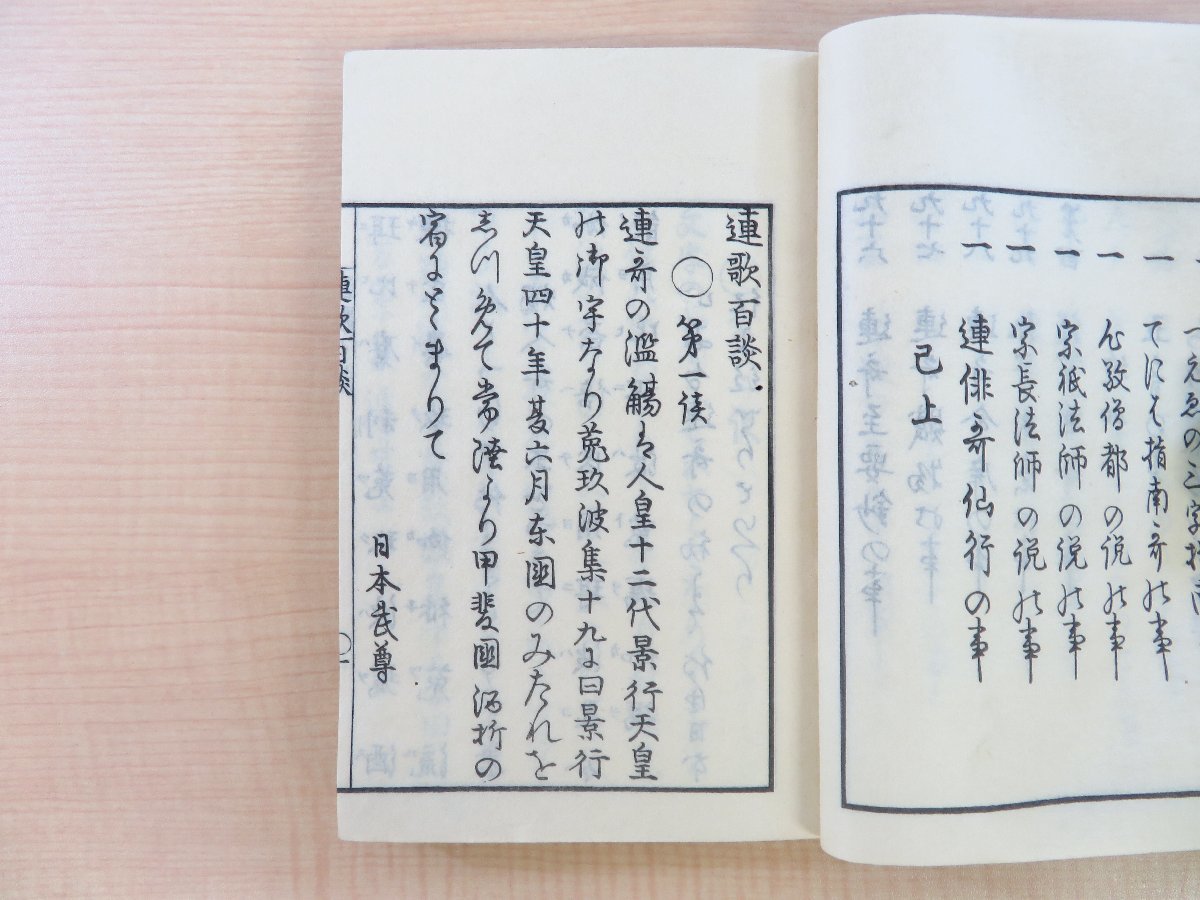 つゑゑの三字
一 てにをは指南哥の事
一 心敬僧都の説の事
一 宗祇法師の説の事
一 宗長法師の説の事
一 連俳哥仙行の事
已上
連歌百談
○ 第一談
連哥の濫觴は人皇十二代景行天皇
の御宇なり菟玖波集十九に曰景行
天皇四十年夏六月东國のみたれを
志川めて常陸より甲斐國酒折の
宿にとゝまりて
日本武尊
連歌百談
〇一